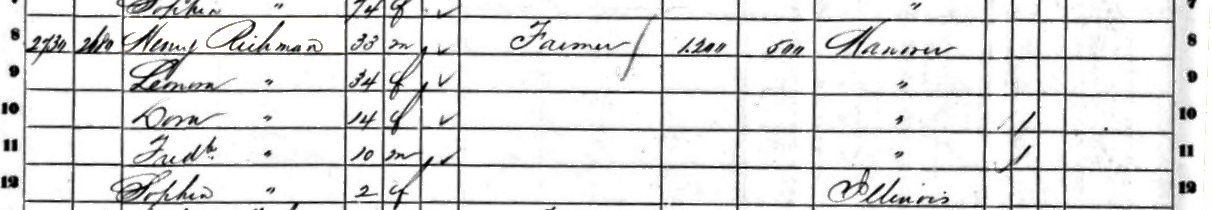 Sophia " 74 f ✓ "
8 2730 Henry Richman 33 m ✓ Farmer 1.200 500 Hanover 8
9 Leonora " 34 f ✓ " 9
10 Dora " 14 f ✓ " 1 10
11 Fredk " 10 m ✓ " 1 11
12 Sophia " 2 f Illinois 12